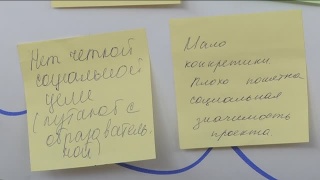 Нет четкой
социальной
цели
(путают с
образователь-
ной)
Мало
конкретики
Плохо понятна
социальная
значимость
проекта